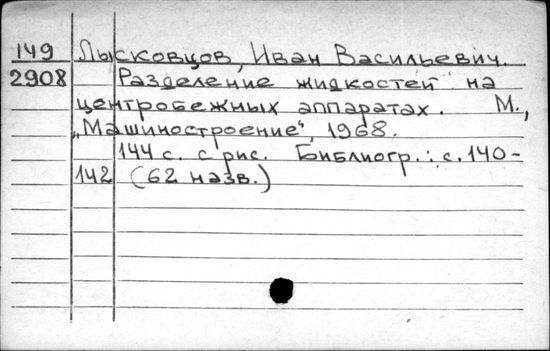 149 Лысковцов, Иван Васильевич.
2908 Разделение жидкостей на
центробежных аппаратах. М.,
„Машиностроение“, 1968.
144 с. с рис. Библиогр.: с. 140-
142 (62 назв.)